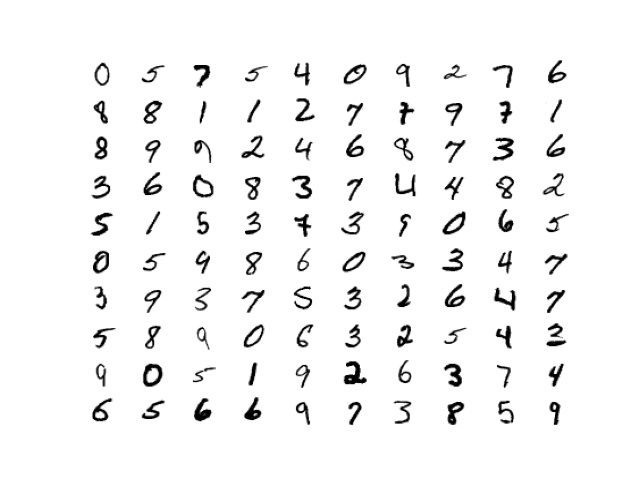 0 5 7 5 4 0 9 2 7 6
8 8 1 1 2 7 7 9 7 1
8 9 9 2 4 6 8 7 3 6
3 6 0 8 3 7 4 4 8 2
5 1 5 3 7 3 9 0 6 5
0 5 9 8 6 0 3 3 4 7
3 9 3 7 5 3 2 6 4 7
5 8 9 0 6 3 2 5 4 3
9 0 5 1 9 2 6 3 7 4
6 5 6 6 9 7 3 8 5 9